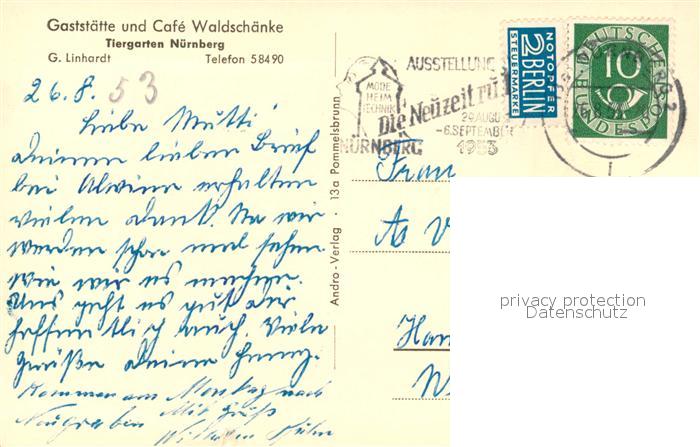 Gaststätte und Café Waldschänke
Tiergarten Nürnberg
G. Linhardt Telefon 58490
26.8.53
Liebe Mutti
deinen lieben Brief
bei Alwine erhalten
vielen Dank. Na wir
werden schon mal sehen
wie wir es machen.
Uns geht es gut dir
hoffentlich auch. Viele
Grüße deine
Kommen am Montag nach
Neugraben Mit Gruß
Wilhelm
Andro-Verlag · 13a Pommelsbrunn
AUSSTELLUNG
MODE
HEIM
TECHNIK
Die Neuzeit ru
29. AUGU
-6. SEPTEMBER
1953
NÜRNBERG
NOTOPFER
2 BERLIN
STEUERMARKE
DEUTSCHE
BUNDESPOST
10
Frau
privacy protection
Datenschutz